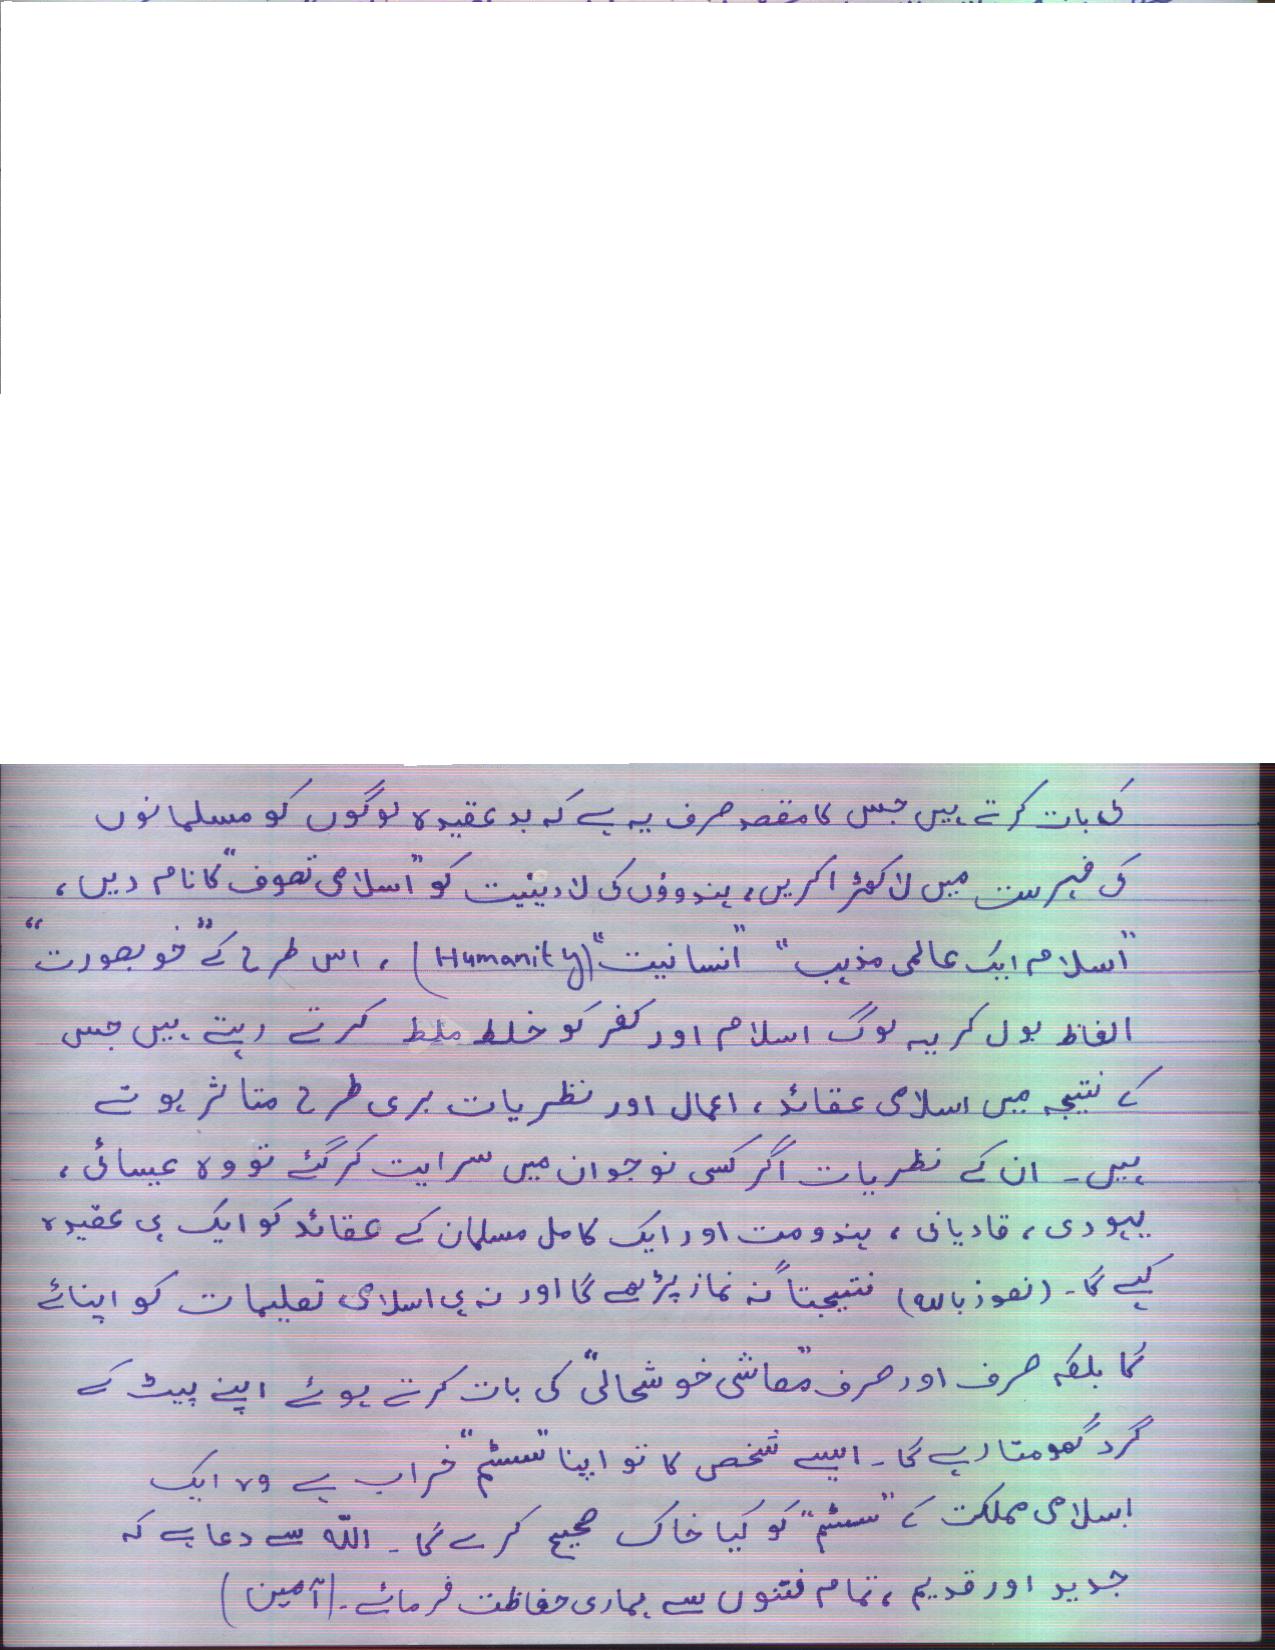 کی بات کرتے ہیں جس کا مقصد صرف یہ ہے کہ بد عقیدہ لوگوں کو مسلمانوں
کی فہرست میں لا کھڑا کریں، ہندوؤں کی لادینیت کو "اسلامی تصوف" کا نام دیں،
"اسلام ایک عالمی مذہب" "انسانیت" (Humanity)، اس طرح کے "خوبصورت"
الفاظ بول کر یہ لوگ اسلام اور کفر کو خلط ملط کرتے رہتے ہیں جس
کے نتیجہ میں اسلامی عقائد، اعمال اور نظریات بری طرح متاثر ہوتے
ہیں۔ ان کے نظریات اگر کسی نوجوان میں سرایت کر گئے تو وہ عیسائی،
یہودی، قادیانی، ہندومت اور ایک کامل مسلمان کے عقائد کو ایک ہی عقیدہ
کہے گا۔ (نعوذ باللہ) نتیجتاً نہ نماز پڑھے گا اور نہ ہی اسلامی تعلیمات کو اپنائے
گا بلکہ صرف اور صرف "معاشی خوشحالی" کی بات کرتے ہوئے اپنے پیٹ کے
گرد گھومتا رہے گا۔ ایسے شخص کا تو اپنا "سسٹم" خراب ہے وہ ایک
اسلامی مملکت کے "سسٹم" کو کیا خاک صحیح کرے گا۔ اللّٰہ سے دعا ہے کہ
جدید اور قدیم، تمام فتنوں سے ہماری حفاظت فرمائے۔ (آمین)